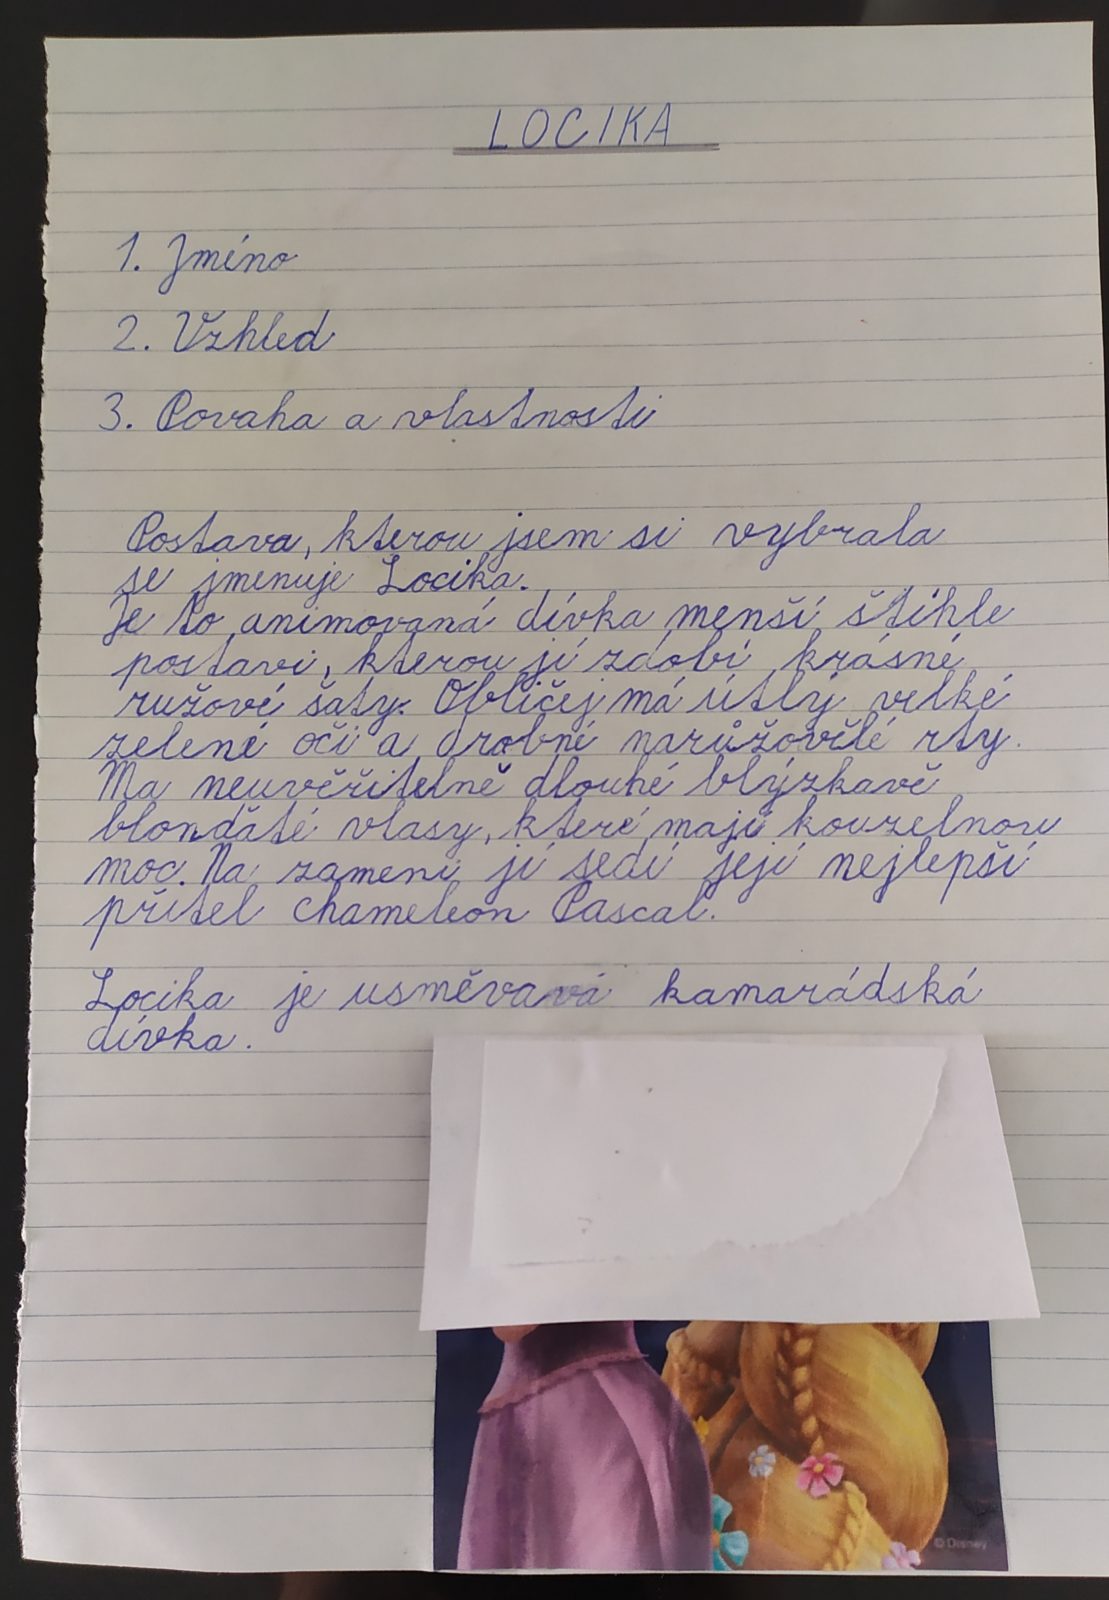 LOCIKA
1. Jméno
2. Vzhled
3. Povaha a vlastnosti
Postava, kterou jsem si vybrala
se jmenuje Locika.
Je to animovaná dívka menší štíhle
postavi, kterou jí zdobí krásné
ružové šaty. Obličej má útlý velké
zelené oči a drobné narůžovělé rty.
Ma neuvěřitelně dlouhé blýzkavě
blonďáté vlasy, které mají kouzelnou
moc. Na rameni jí sedí její nejlepší
přítel chameleon Pascal.
Locika je usměvavá kamarádská
dívka.
© Disney